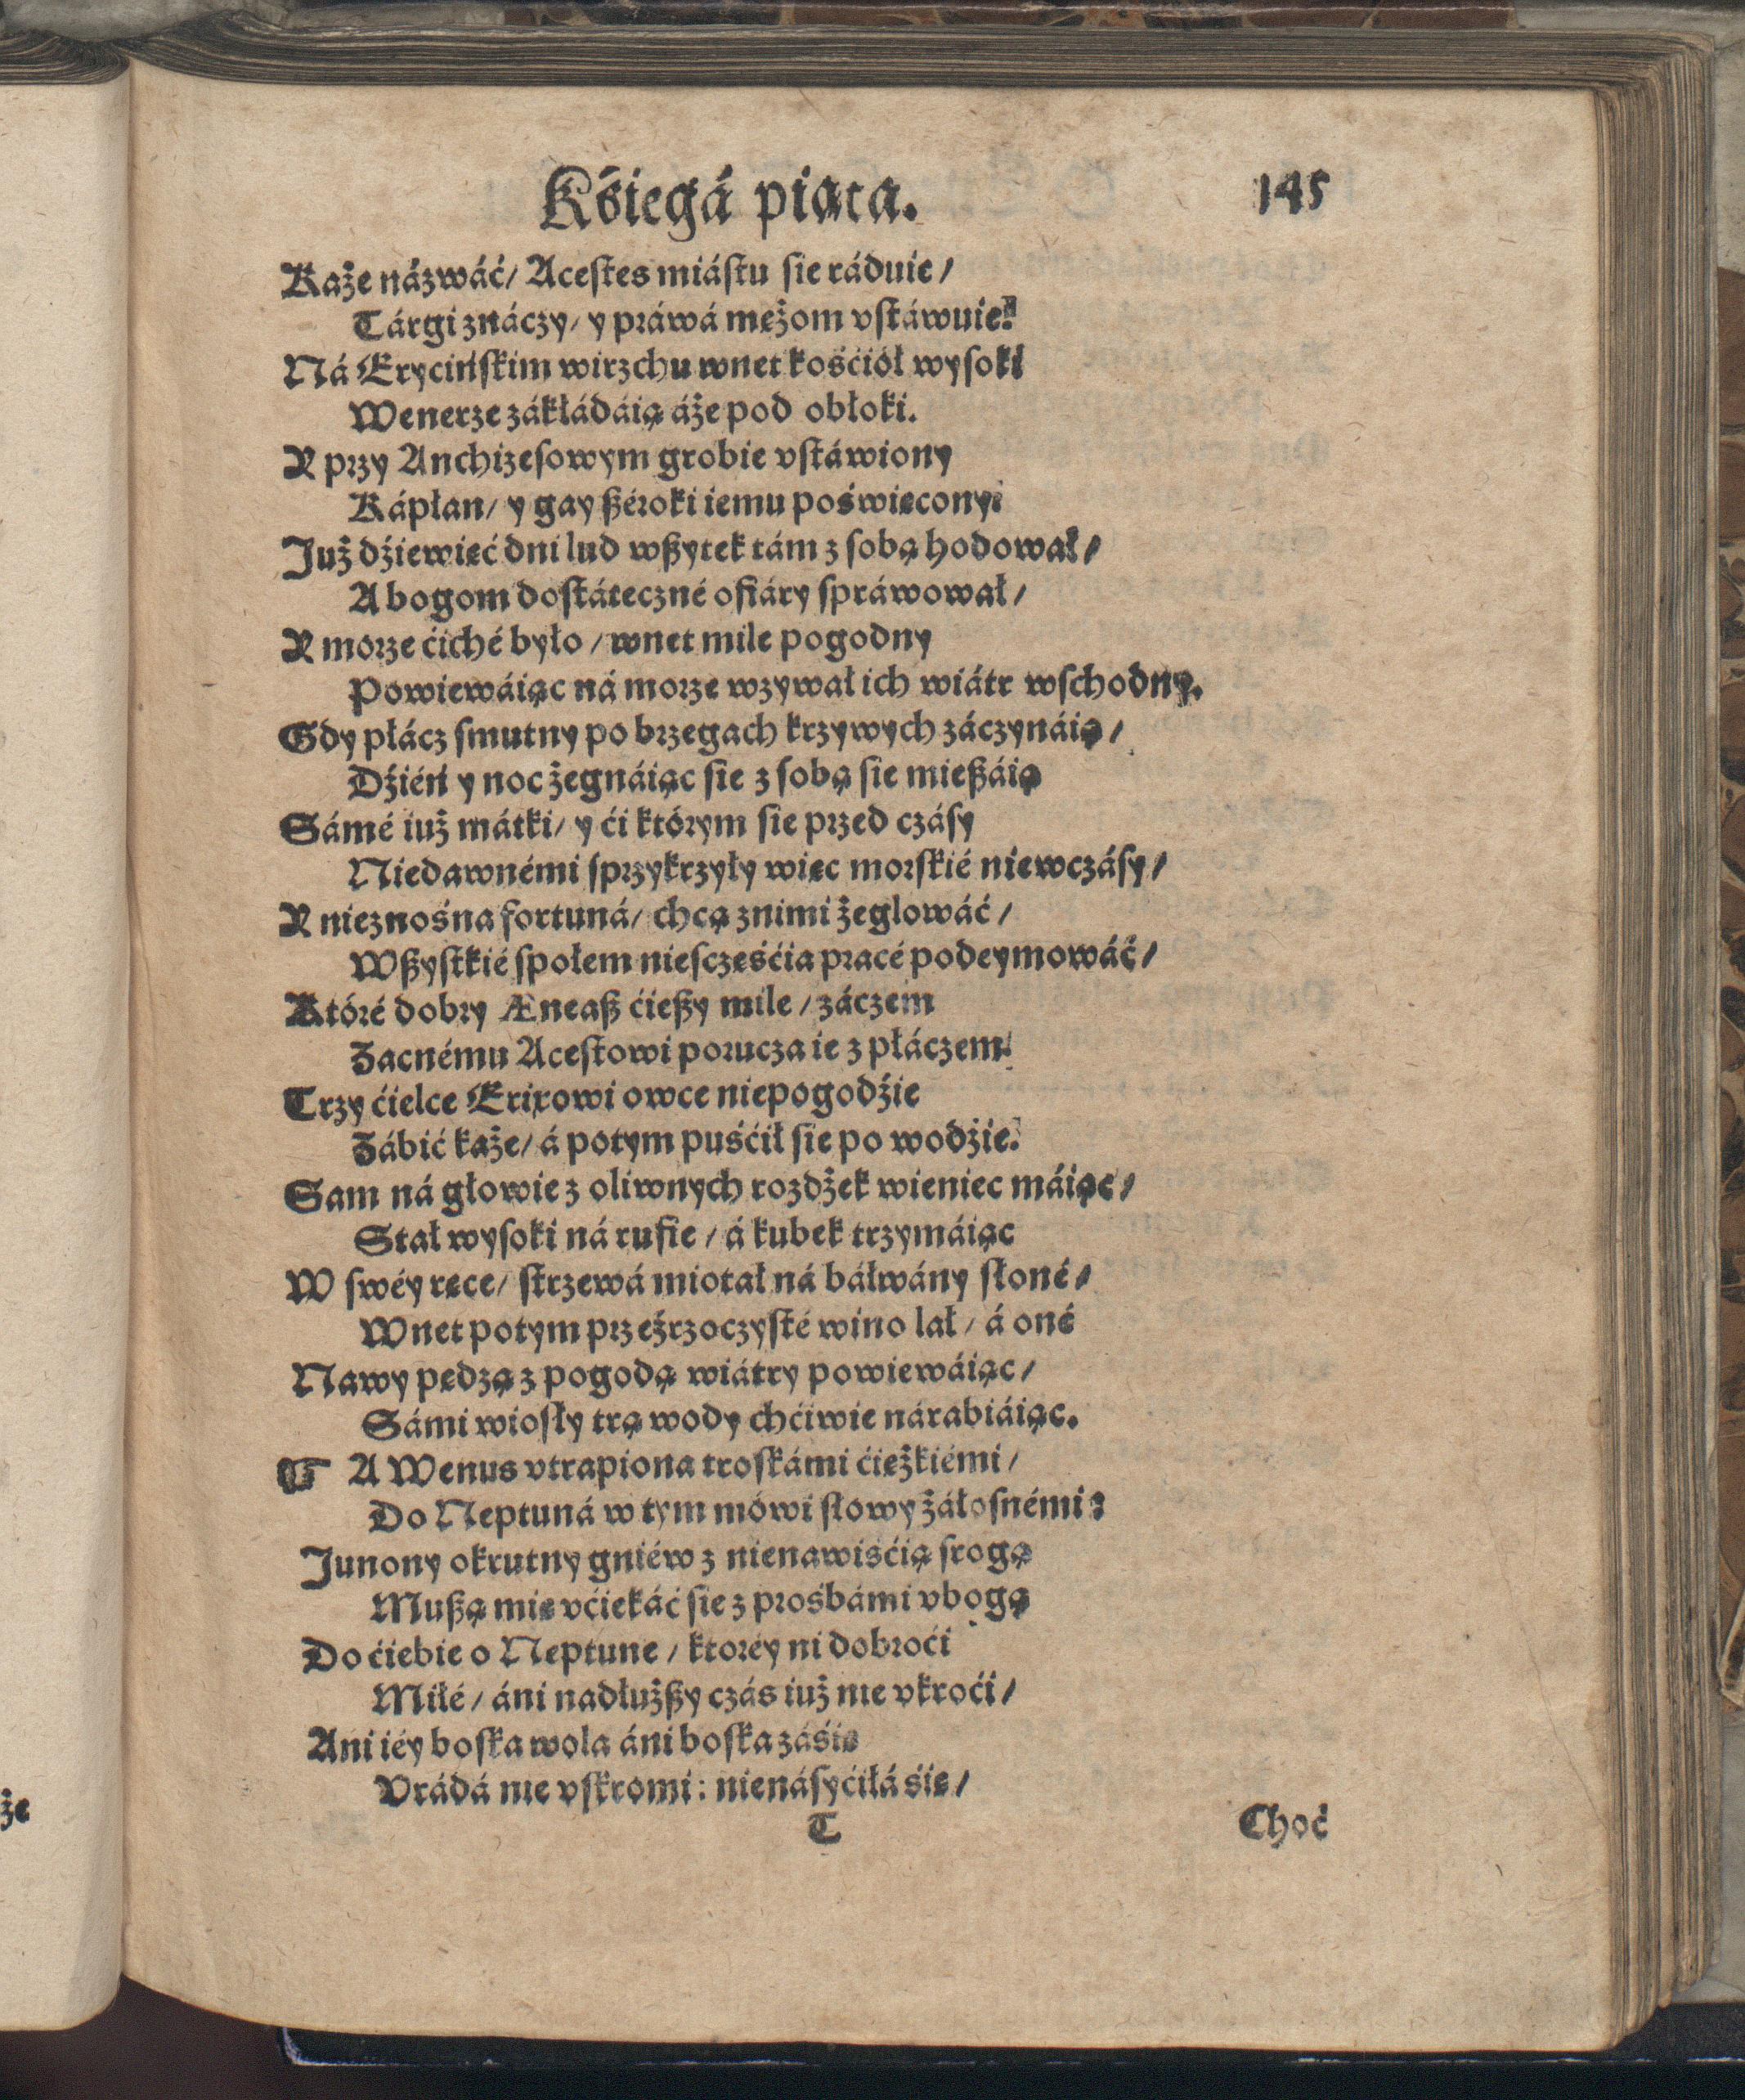 Kśięgá piąta. 145
Każe názwáć/ Acestes miástu sie ráduie/
Tárgi znáczy/ y práwá mężom vstáwuie.
Ná Erycińskim wirzchu wnet kośćiół wysoki
Wenerze zákłádáią áże pod obłoki.
Y przy Anchizesowym grobie vstáwiony
Kápłan/ y gay ßéroki iemu poświęcony.
Już dźiewięć dni lud wßytek tám z sobą hodował/
A bogom dostáteczné ofiáry spráwował/
Y morze ćiché było/ wnet mile pogodny
Powiewáiąc ná morze wzywał ich wiátr wschodny.
Gdy płácz smutny po brzegach krzywych záczynáią/
Dźień y noc żegnáiąc sie z sobą sie mießáią
Sámé iuż mátki/ y ći którym sie przed czásy
Niedawnémi sprzykrzyły więc morskié niewczásy/
Y nieznośna fortuná/ chcą znimi żeglowáć/
Wßystkié społem niesczęśćia pracé podeymowáć/
Któré dobry Æneaß ćießy mile/ záczem
Zacnému Acestowi porucza ie z płáczem.
Trzy ćielce Erixowi owce niepogodźie
Zábić każe/ á potym puśćił sie po wodźie.
Sam ná głowie z oliwnych rozdżek wieniec máiąc/
Stał wysoki ná rufie/ á kubek trzymáiąc
W swéy ręce/ strzewá miotał ná báłwány słoné/
Wnet potym przeźrzoczysté wino lał/ á oné
Nawy pędzą z pogodą wiátry powiewáiąc/
Sámi wiosły trą wody chćiwie nárabiáiąc.
☞ A Wenus vtrapiona troskámi ćiężkiémi/
Do Neptuná w tym mówi słowy żáłosnémi:
Junony okrutny gniéw z nienawiśćią srogą
Mußą mię vćiekáć sie z prośbámi vbogą
Do ćiebie o Neptune/ ktoréy ni dobroći
Miłé/ áni nadłużßy czás iuż nie vkroći/
Ani iéy boska wola áni boska záśię
Vrádá nie vskromi: nienásyćiłá śię/
T Choć
że